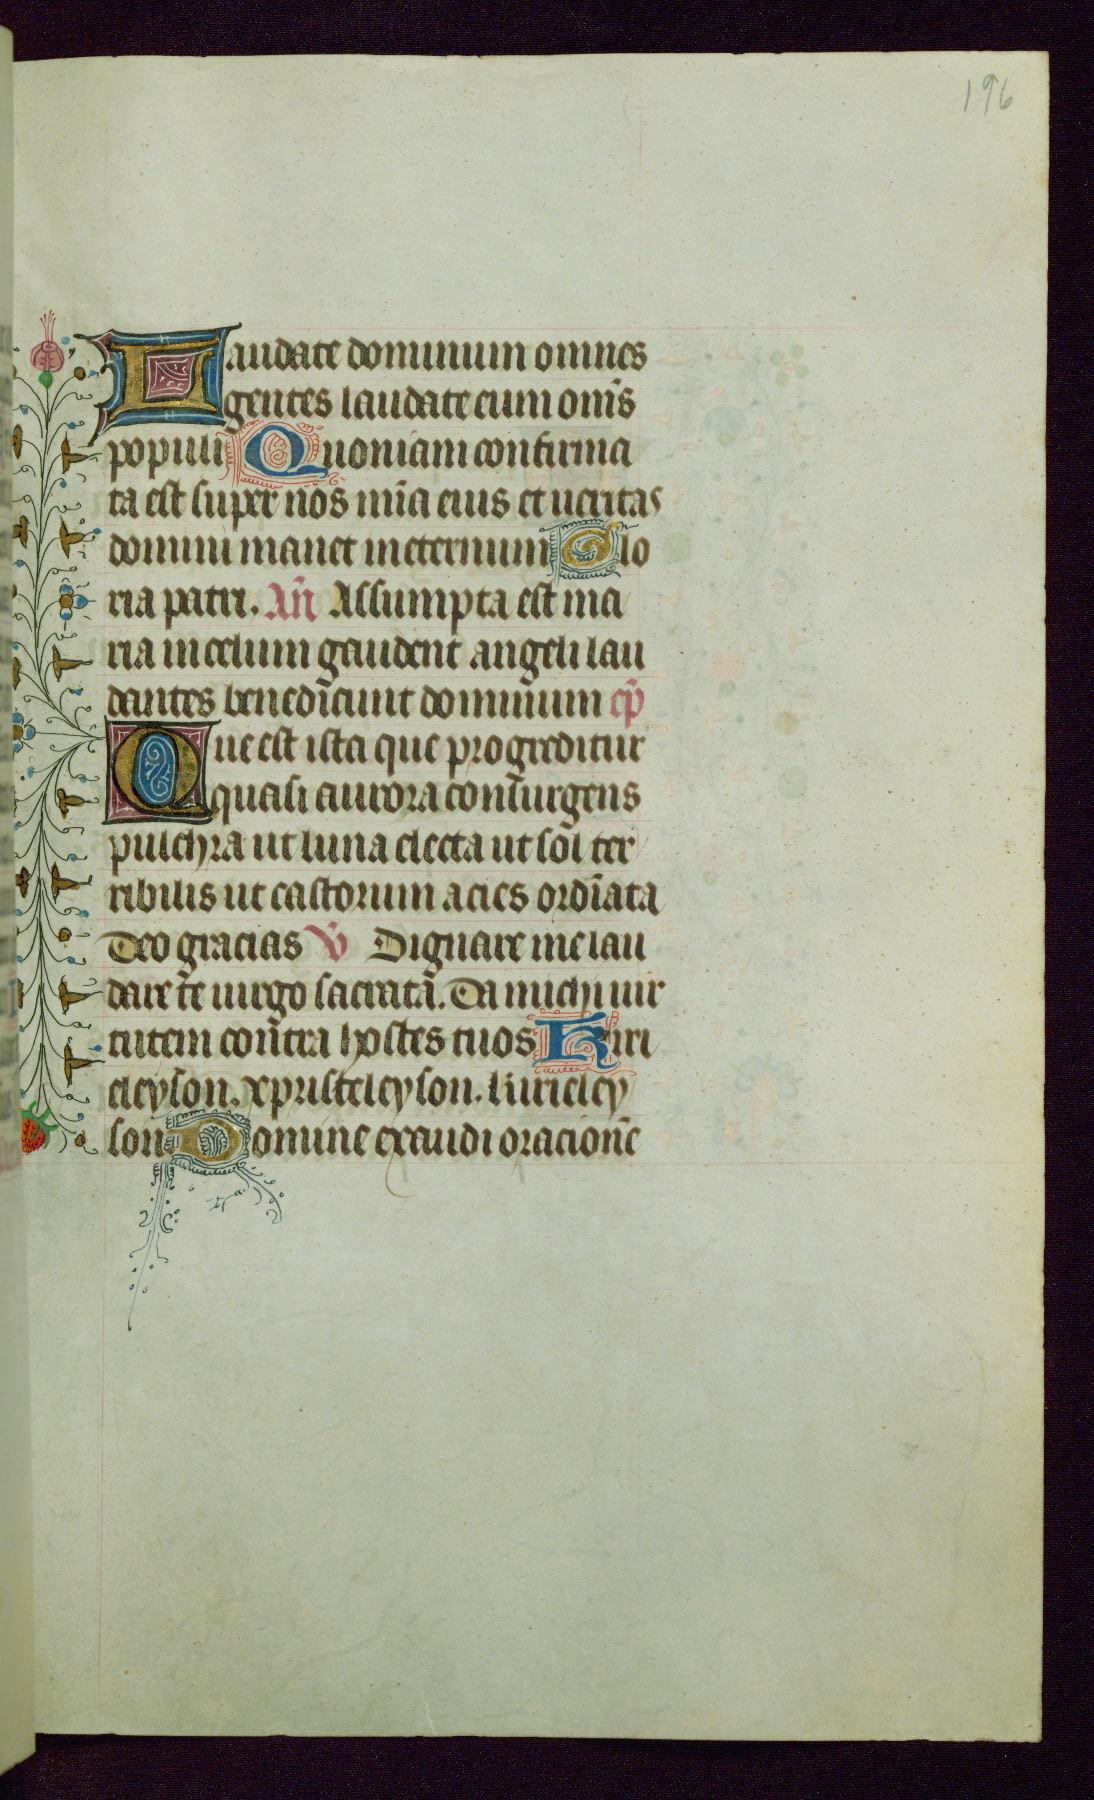 196
Laudate dominum omnes
gentes laudate eum om̄s
populi Quoniam confirma
ta est super nos mīa eius et ueritas
domini manet in eternum Glo
ria patri. An̄ Assumpta est ma
ria in celum gaudent angeli lau
dantes benedicunt dominum cp̄
Que est ista que progreditur
quasi aurora consurgens
pulchra ut luna electa ut sol ter
ribilis ut castorum acies ordīata
Deo gracias v̄ Dignare me lau
dare te uirgo sacrata. Da michi uir
tutem contra hostes tuos Kiri
eleyson. xpristeleyson. kirieley
son Domine exaudi oracionē